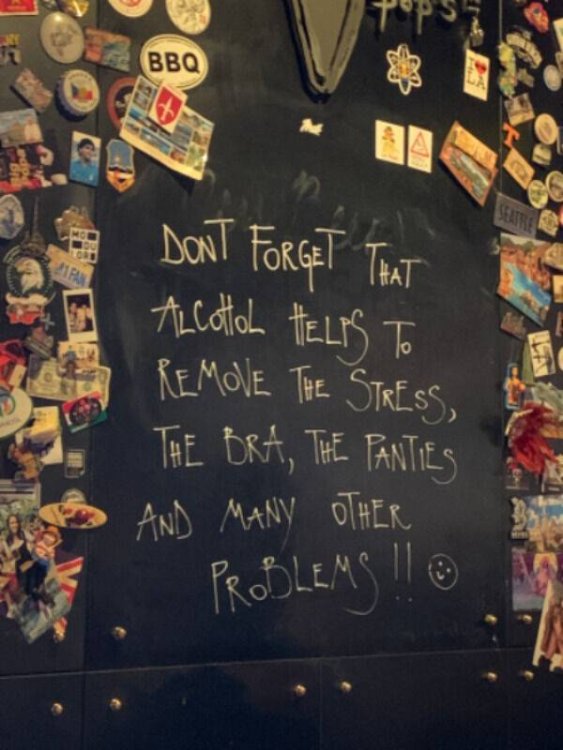 POP'S
BBQ
I ♥ LA
SEATTLE
DON'T FORGET THAT
ALCOHOL HELPS TO
REMOVE THE STRESS,
THE BRA, THE PANTIES
AND MANY OTHER
PROBLEMS!! ☺